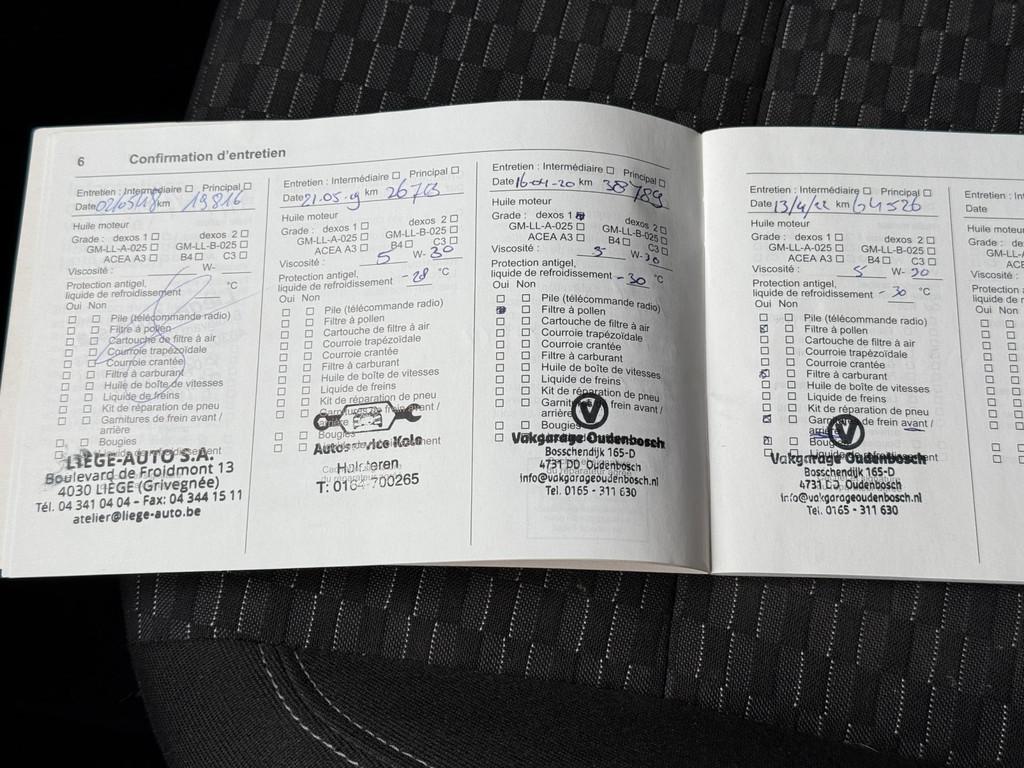 6 Confirmation d'entretien
Entretien : Intermédiaire Principal
Date 02/05/18 km 19816
Huile moteur
Grade : dexos 1 dexos 2
GM-LL-A-025 GM-LL-B-025
ACEA A3 B4 C3
Viscosité : W-
Protection antigel,
liquide de refroidissement °C
Oui Non
Pile (télécommande radio)
Filtre à pollen
Cartouche de filtre à air
Courroie trapézoïdale
Courroie crantée
Filtre à carburant
Huile de boîte de vitesses
Liquide de freins
Kit de réparation de pneu
Garnitures de frein avant /
arrière
Bougies
LIEGE-AUTO S.A.
Boulevard de Froidmont 13
4030 LIEGE (Grivegnée)
Tél. 04 341 04 04 - Fax: 04 344 15 11
atelier@liege-auto.be
Entretien : Intermédiaire Principal
Date 21.05.19 km
Huile moteur
Grade : dexos 1 dexos 2
GM-LL-A-025 GM-LL-B-025
ACEA A3 B4 C3
Viscosité : 5 W- 30
Protection antigel,
liquide de refroidissement -28 °C
Oui Non
Pile (télécommande radio)
Filtre à pollen
Cartouche de filtre à air
Courroie trapézoïdale
Courroie crantée
Filtre à carburant
Huile de boîte de vitesses
Liquide de freins
Kit de réparation de pneu
Garnitures de frein avant /
arrière
Bougies
Kolo
Halsteren
T: 0164-700265
Entretien : Intermédiaire Principal
Date 16-04-20 km 38789
Huile moteur
Grade : dexos 1 dexos 2
GM-LL-A-025 GM-LL-B-025
ACEA A3 B4 C3
Viscosité : 5 W-30
Protection antigel,
liquide de refroidissement -30 °C
Oui Non
Pile (télécommande radio)
Filtre à pollen
Cartouche de filtre à air
Courroie trapézoïdale
Courroie crantée
Filtre à carburant
Huile de boîte de vitesses
Liquide de freins
Kit de réparation de pneu
Garnitures de frein avant /
arrière
Bougies
Vakgarage Oudenbosch
Bosschendijk 165-D
4731 DD Oudenbosch
info@vakgarageoudenbosch.nl
Tel. 0165 - 311 630
Entretien : Intermédiaire Principal
Date 13/4/22 km 64526
Huile moteur
Grade : dexos 1 dexos 2
GM-LL-A-025 GM-LL-B-025
ACEA A3 B4 C3
Viscosité : 5 W- 20
Protection antigel,
liquide de refroidissement - 30 °C
Oui Non
Pile (télécommande radio)
Filtre à pollen
Cartouche de filtre à air
Courroie trapézoïdale
Courroie crantée
Filtre à carburant
Huile de boîte de vitesses
Liquide de freins
Kit de réparation de pneu
Garnitures de frein avant /
arrière
Bougies
Vakgarage Oudenbosch
Bosschendijk 165-D
4731 DD Oudenbosch
info@vakgarageoudenbosch.nl
Tel. 0165 - 311 630
Entretien : Int
Date
Huile moteur
Grade : de
GM-LL-
ACE
Viscosité :
Protection
liquide de r
Oui Non